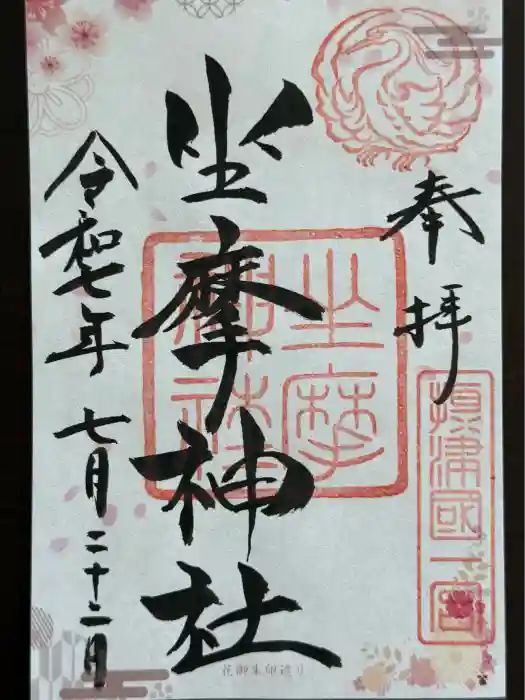 奉拝
摂津國一宮
坐摩神社
坐摩神社
令和七年七月二十二月
花御朱印巡り